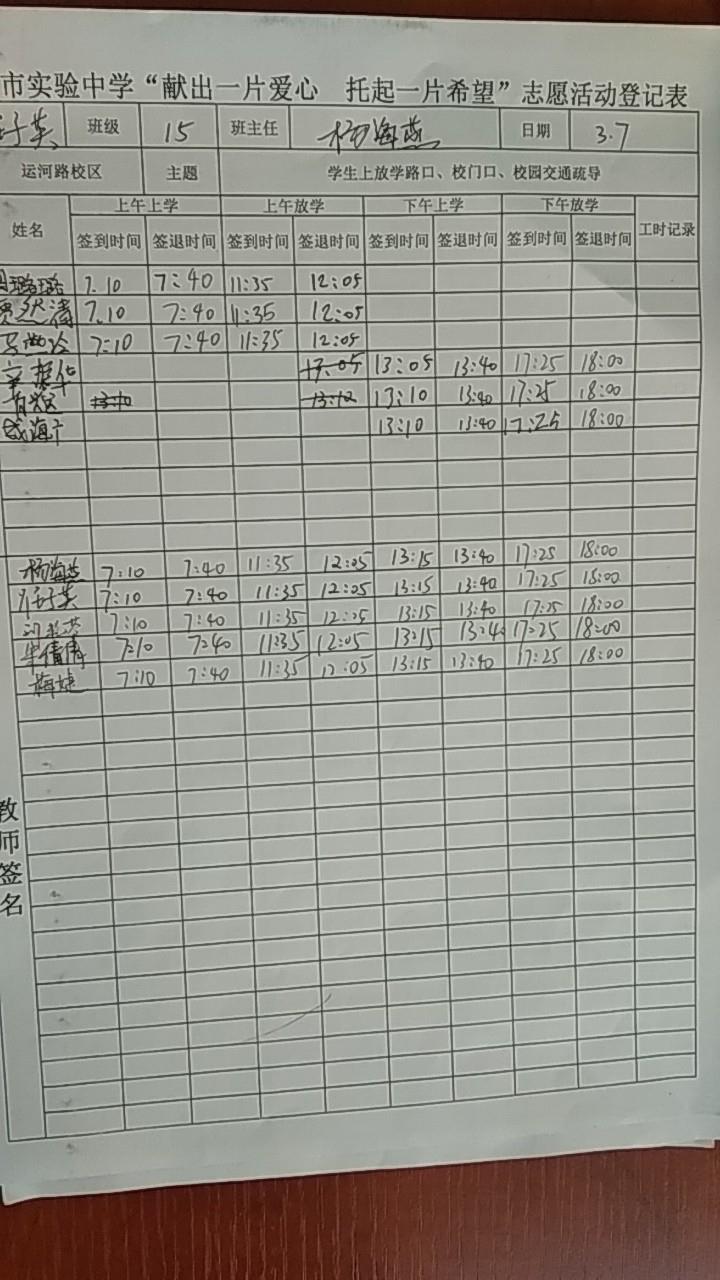 市实验中学“献出一片爱心 托起一片希望”志愿活动登记表
班级 15 班主任 杨海燕 日期 3.7
运河路校区 主题 学生上放学路口、校门口、校园交通疏导
姓名 上午上学 上午放学 下午上学 下午放学 工时记录
签到时间 签退时间 签到时间 签退时间 签到时间 签退时间 签到时间 签退时间
璐璐 7.10 7:40 11:35 12:05
贾然清 7.10 7:40 11:35 12:05
7:10 7:40 11:35 12:05
13:05 13:05 13:40 17:25 18:00
13:10 13:12 13:10 13:40 17:25 18:00
13:10 13:40 17:25 18:00
杨海燕 7:10 7:40 11:35 12:05 13:15 13:40 17:25 18:00
7:10 7:40 11:35 12:05 13:15 13:40 17:25 18:00
7:10 7:40 11:35 12:05 13:15 13:40 17:25 18:00
牛倩倩 7:10 7:40 11:35 12:05 13:15 13:40 17:25 18:00
梅婕 7:10 7:40 11:35 12:05 13:15 13:40 17:25 18:00
教师签名